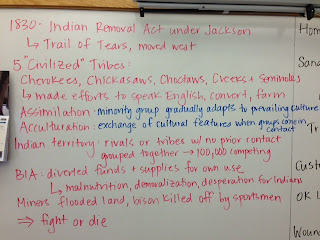 1830- Indian Removal Act under Jackson
↳ Trail of Tears, moved west
5 "Civilized" Tribes:
Cherokees, Chickasaws, Choctaws, Creeks + Seminoles
↳ made efforts to speak English, convert, farm
Assimilation: minority group gradually adapts to prevailing culture
Acculturation: exchange of cultural features when groups come in contact
Indian territory: rivals or tribes w/ no prior contact
grouped together → 100,000 competing
BIA: diverted funds + supplies for own use
↳ malnutrition, demoralization, desperation for Indians
Miners flooded land, bison killed off by sportsmen
⇒ fight or die
Hom
Sana
Tr
Custe
OK L
Wound